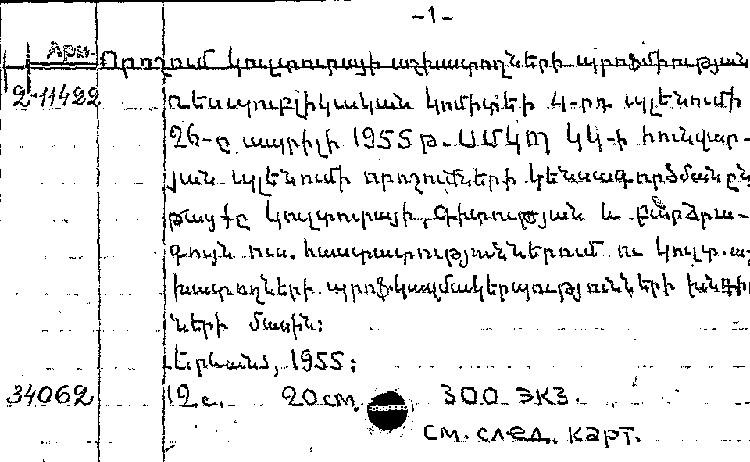 -1-
Որոշում կուլտուրայի աշխատողների պրոֆմիության
2-11422 Ռեսպուբլիկական կոմիտեի 4-րդ պլենումի
26-ը ապրիլի 1955 թ. ՍՄԿՊ ԿԿ-ի հունվար-
յան պլենումի որոշումների կենսագործման ըն
թացքը կուլտուրայի, գիտության և բարձրա-
գույն ուս. հաստատություններում ու կուլտ. աշ
խատողների պրոֆկազմակերպությունների խնդիր
ների մասին:
Երևան, 1955:
34062 12 с. 20 см. 300 экз.
см. след. карт.